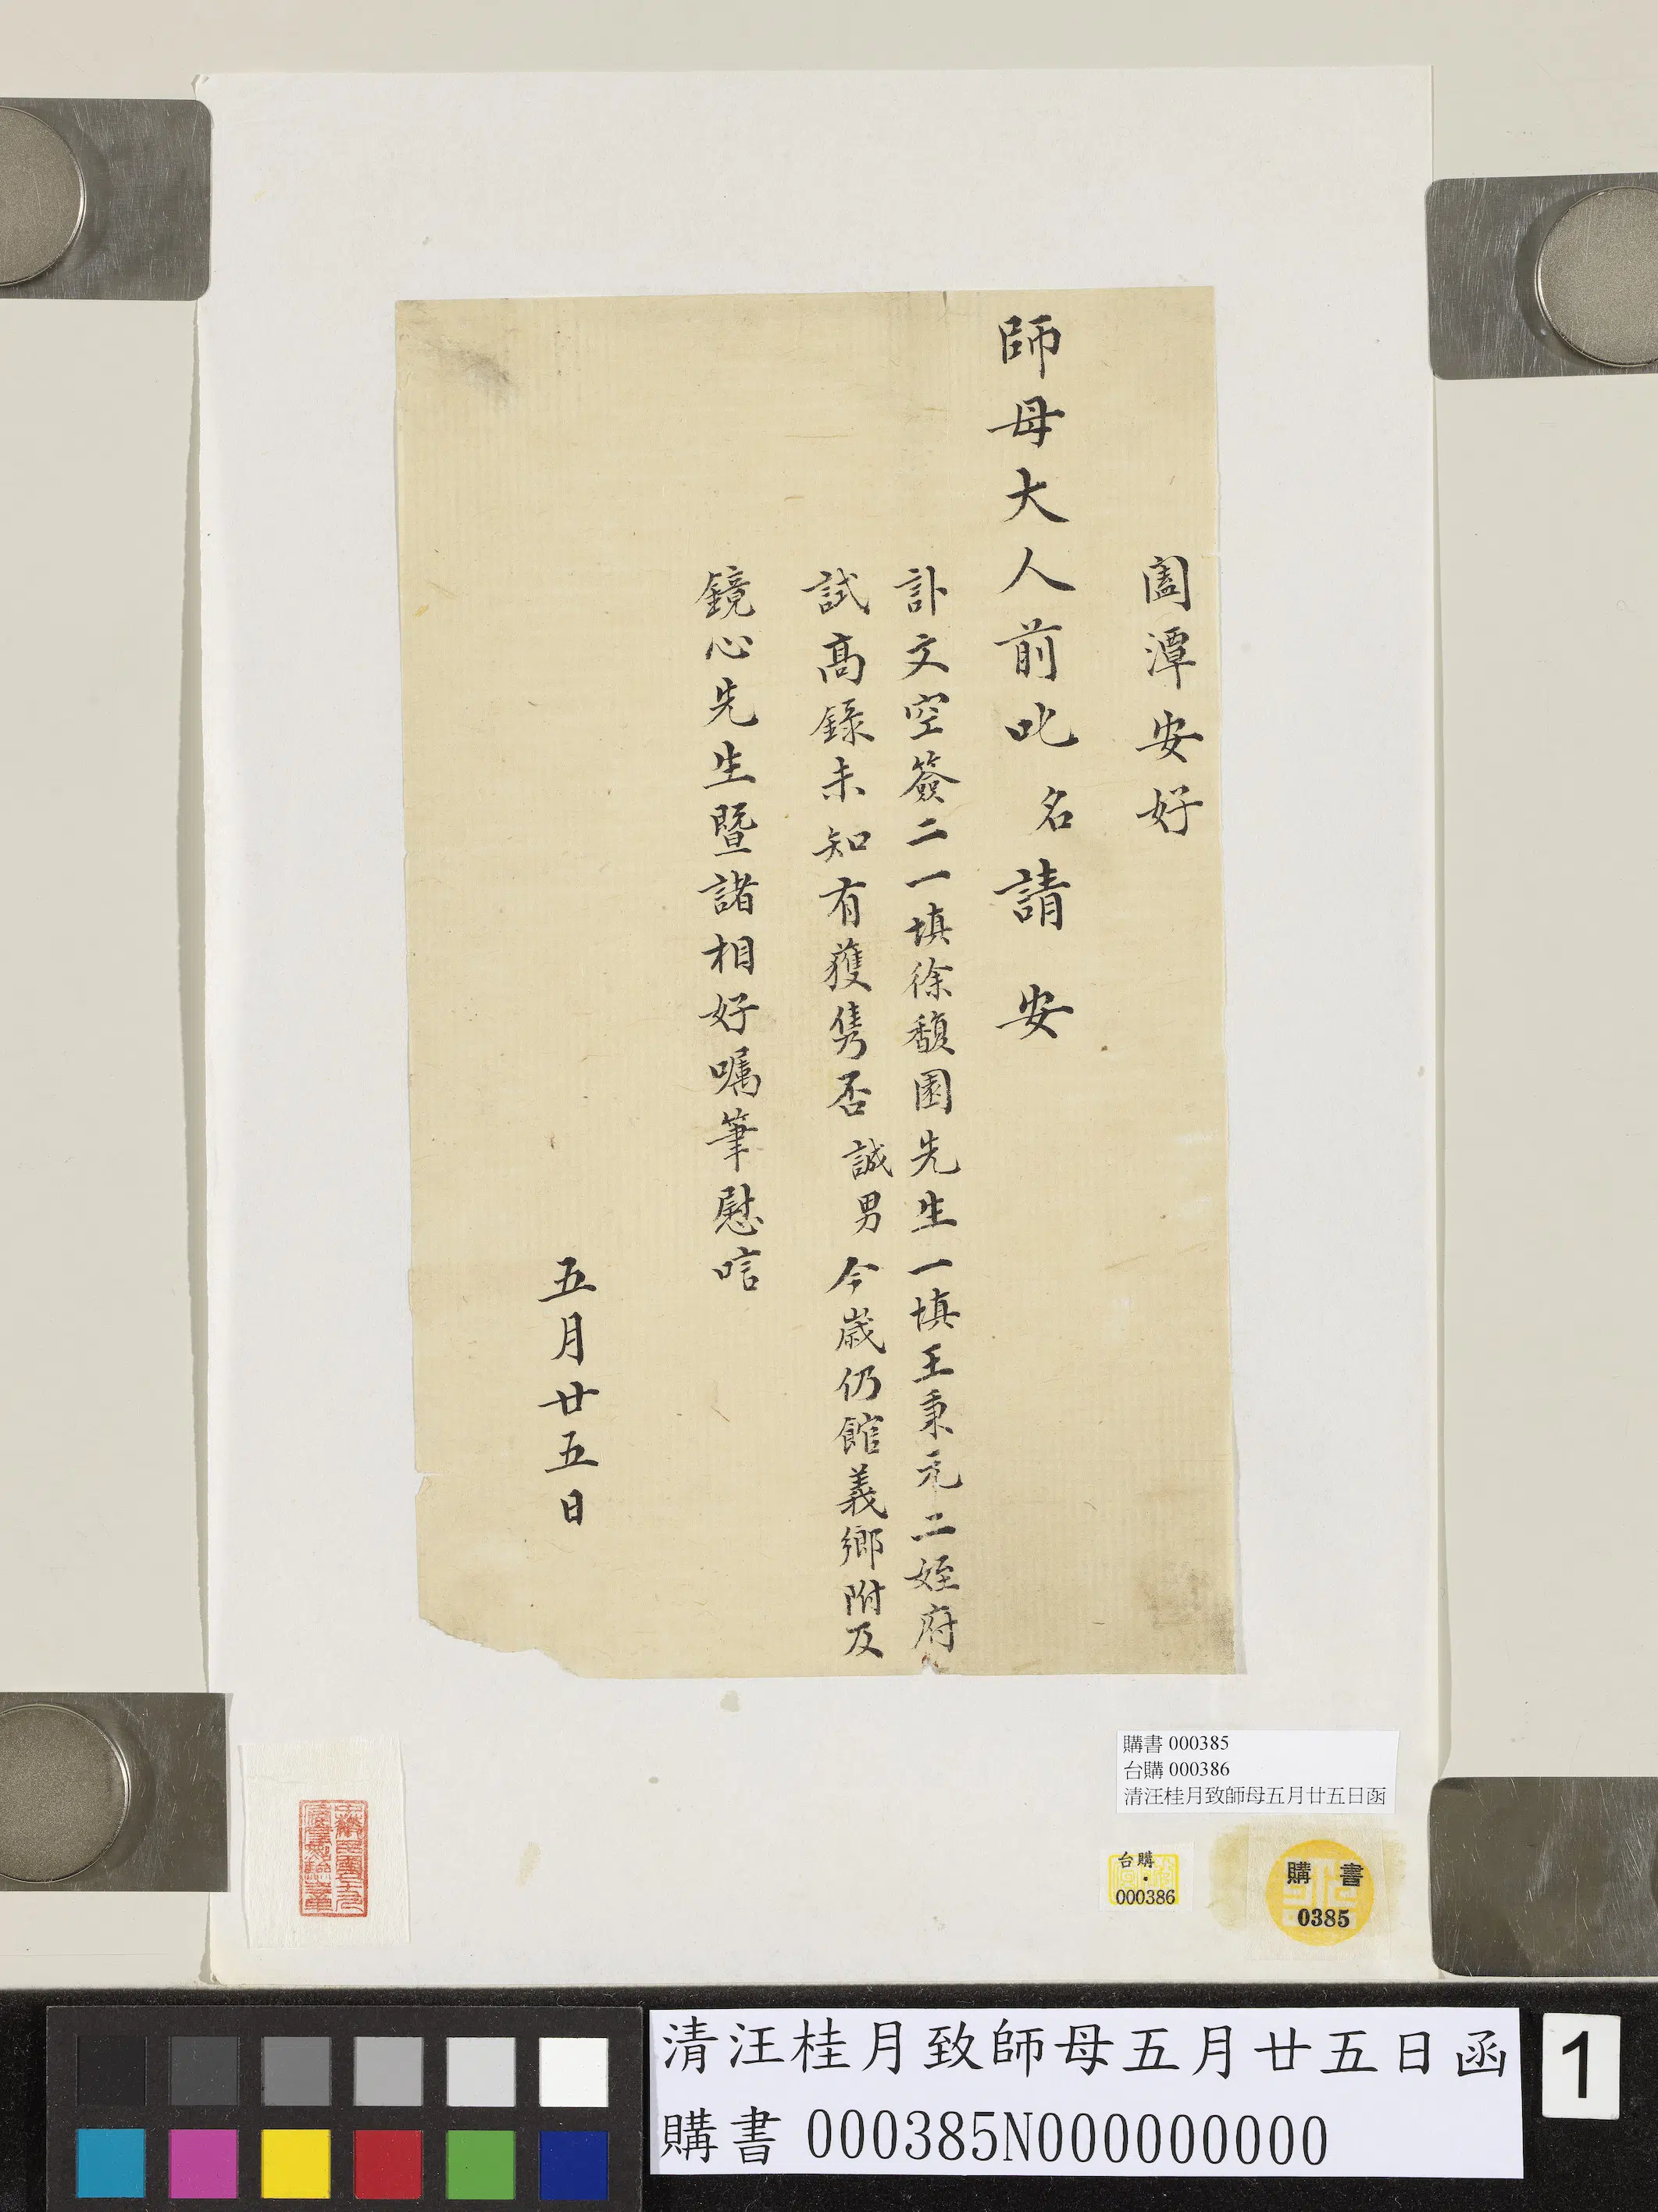 闔潭安好
師母大人前叱名請安
訃文空簽二一填徐馥園先生一填王秉元二姪府
試高錄未知有獲雋否誠男今歲仍館義鄉附及
鏡心先生暨諸相好囑筆慰唁
五月廿五日
購書 000385
台購 000386
清汪桂月致師母五月廿五日函
台購
000386
購 書
0385
清汪桂月致師母五月廿五日函
購書 000385N000000000
1